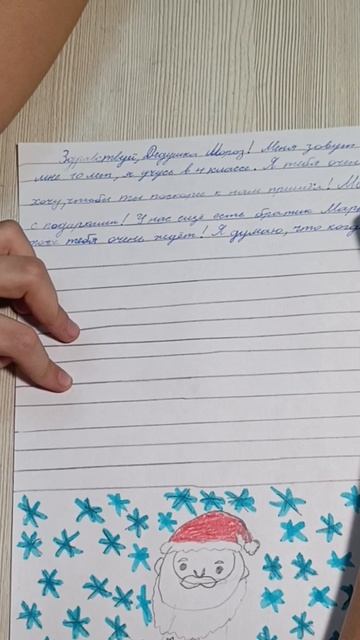 Здравствуй, Дедушка Мороз! Меня зовут
мне 10 лет, я учусь в 4 классе. Я тебя очен
хочу, чтобы ты поскорее к нам пришёл!
с подарками! У нас ещё есть братик Мар
тоже тебя очень ждёт! Я думаю, что когд